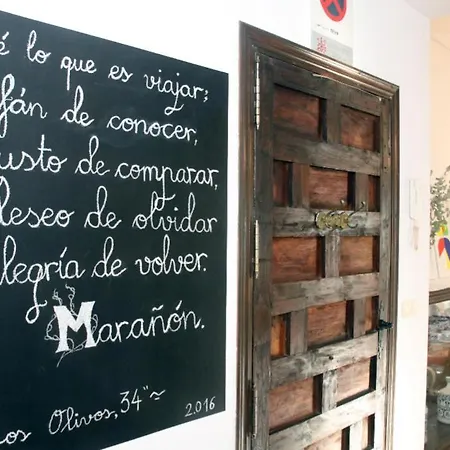 é lo que es viajar;
fán de conocer,
usto de comparar,
deseo de olvidar
alegría de volver.
Marañón.
os Olivos, 34"~
2.016